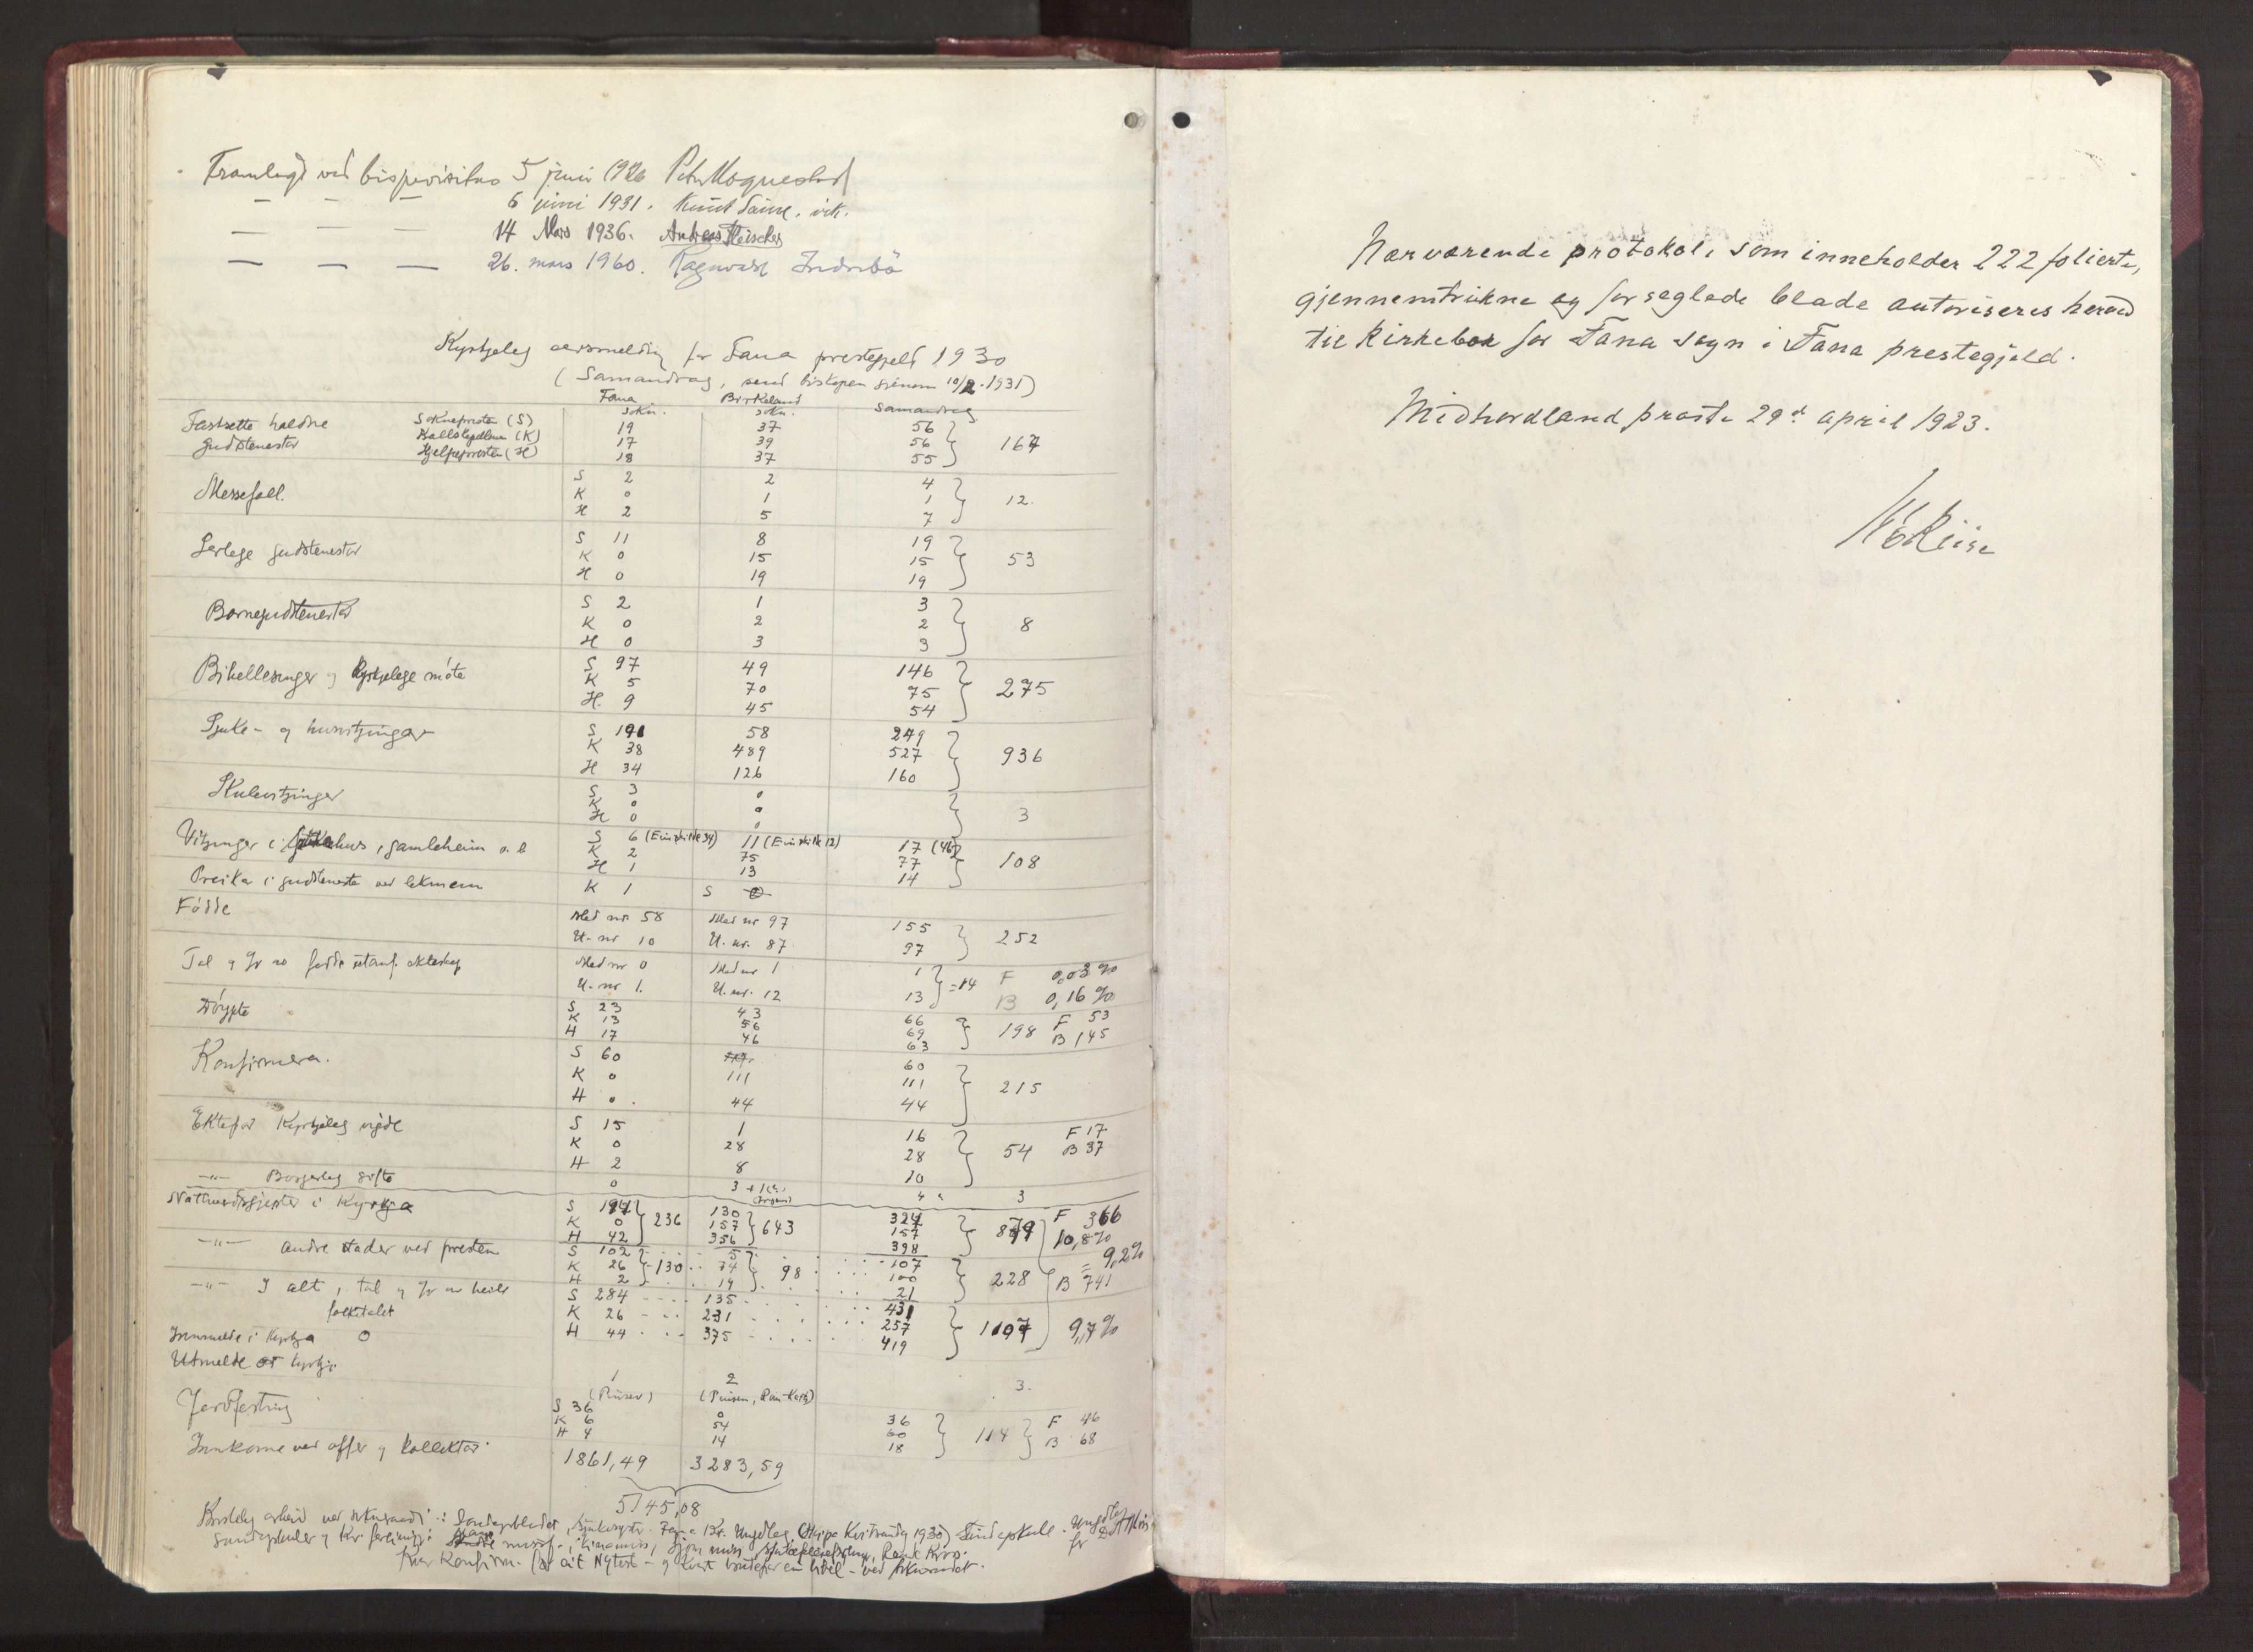 Framlagd ved bispevisitas 5 juni 1926
— — — 6 juni 1931. Knut
— — — 14 Mars 1936. Andreas Fleischer
— — — 26. mars 1960. Ragnvald Indrebö
Kyrkjeleg aarsmelding for Fana prestegjeld 1930
(Samandrag, send biskopen gjenom 10/2. 1931)
Fana sokn. Birkeland sokn. Samandrag
Fastsette haldne Soknepresten (S) 19 37 56
gudstenester Kallskapellanen (K) 17 39 56 167
Hjelpepresten (H) 18 37 55
Messefall. S 2 2 4
K 0 1 1 12.
H 2 5 7
Serlege gudstenester S 11 8 19
K 0 15 15 53
H 0 19 19
Barnegudstenester S 2 1 3
K 0 2 2 8
H 0 3 3
Bibellesingar og kyrkjelege möte S 97 49 146
K 5 70 75 275
H. 9 45 54
Sjuke- og husvitjingar S 191 58 249
K 38 489 527 936
H 34 126 160
Skulevitjingar S 3 0
K 0 0 3
H 0 0
Vitjingar i sjukehus, gamleheim o. l. S 6 (Einskilde 34) 11 (Einskilde 12) 17 (46)
K 2 75 77 108
H 1 13 14
Preika i gudstenesta ved lekmenn K 1 S 0
Födde Med nr. 58 Med nr 97 155
U. nr 10 U. nr. 87 97 252
Tal og pr. födde utanf. ekteskap Med nr 0 Med nr 1 1 =14 F 0,03 %
U. nr 1. U. nr. 12 13 B 0,16 %
Döypte S 23 43 66
K 13 56 69 198 F 53
H 17 46 63 B 145
Konfirmera. S 60 60
K 0 111 111 215
H 0. 44 44
Ektepar Kyrkjeleg vigde S 15 1 16 F 17
K 0 28 28 54 B 37
H 2 8 10
—"— Borgarleg gifte 0 3 + 1 4 3
Nattverdsgjester i Kyrkja S 194 130 324
K 0 236 157 643 157 879 F 366
H 42 356 398 10,8 %
—"— andre stader ved presten S 102 5 107 = 9,2 %
K 26 130 74 98 100 228 B 741
H 2 19 21
—"— I alt, tal og pr av heile S 284 135 431
folketalet K 26 231 257 1107 9,7 %
H 44 375 419
Innmelde i Kyrkja 0
Utmelde or kyrkja 1 2 3.
Jordfesting S 36 0 36
K 6 54 60 114 F 46
H 4 14 18 B 68
Innkome ved offer og kollektar 1861,49 3283,59
5145,08
Nærværende protokol, som inneholder 222 folierte,
gjennemtrukne og forseglede blade autoriseres herved
til kirkebok for Fana sogn i Fana prestegjeld.
Midhordland prosti 29d april 1923.